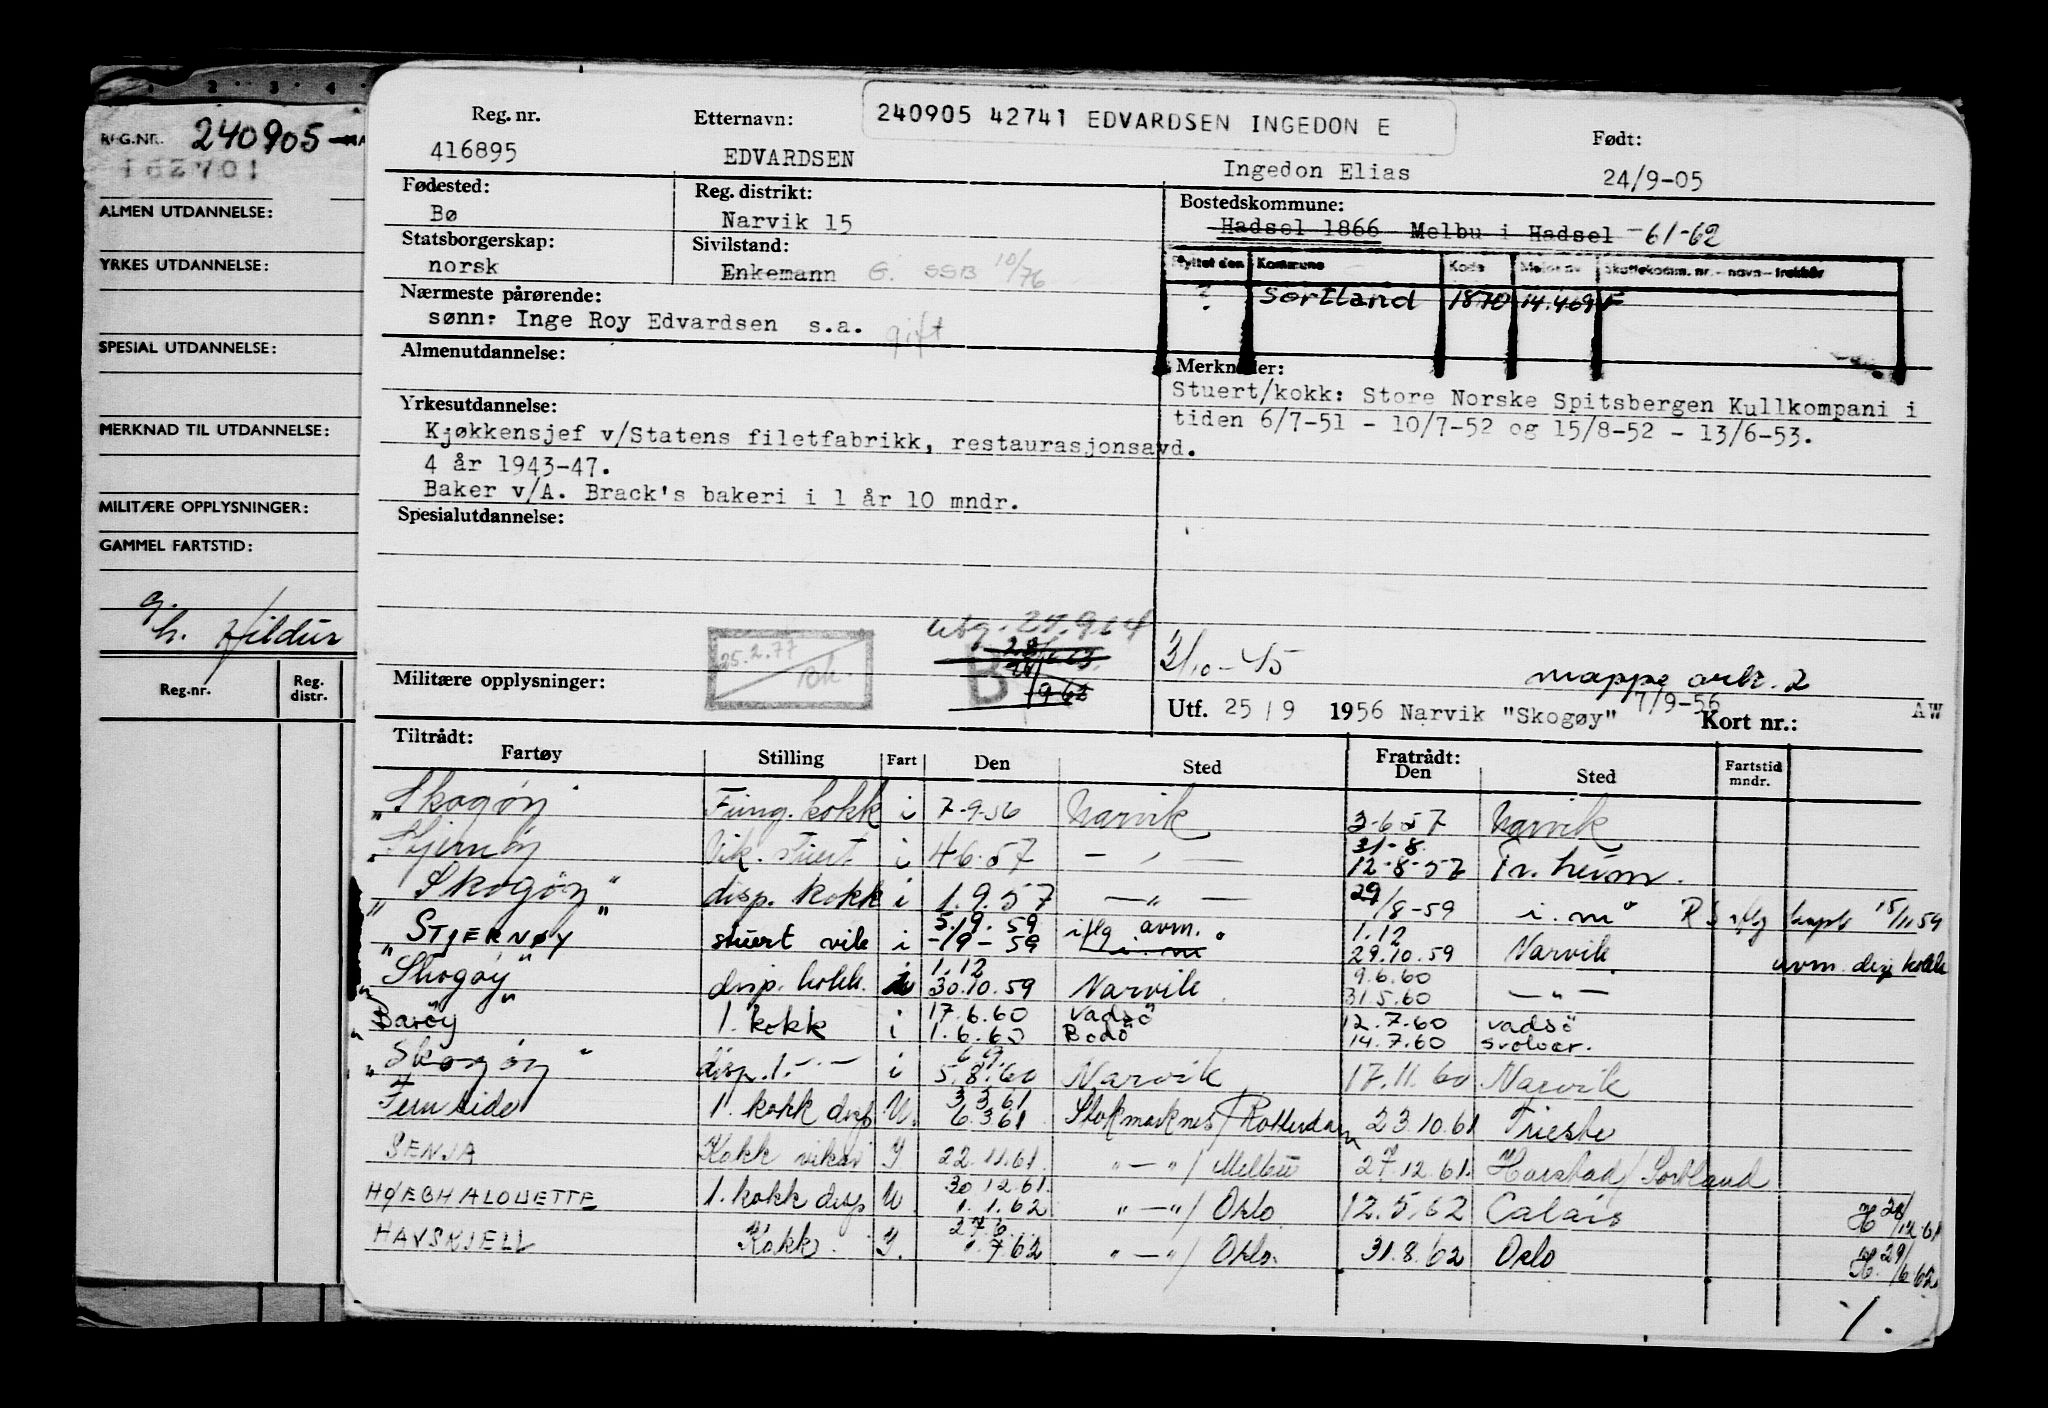 1 2 3 4
REG.NR. 240905
162701
ALMEN UTDANNELSE:
YRKES UTDANNELSE:
SPESIAL UTDANNELSE:
MERKNAD TIL UTDANNELSE:
MILITÆRE OPPLYSNINGER:
GAMMEL FARTSTID:
g.
h. Hildur
Reg.nr. Reg. distr.
240905 42741 EDVARDSEN INGEDON E
Reg. nr. Etternavn: Født:
416895 EDVARDSEN Ingedon Elias 24/9-05
Fødested: Reg. distrikt: Bostedskommune:
Bø Narvik 15 Hadsel 1866 Melbu i Hadsel -61-62
Statsborgerskap: Sivilstand:
norsk Enkemann G. SSB 10/76
Flyttet den Kommune Kode Meldt nv Skattekomm. nr. - navn - trekkår
? Sortland 1870 14.4.69 F
Nærmeste pårørende:
sønn: Inge Roy Edvardsen s.a. gift
Almenutdannelse:
Merknader:
Stuert/kokk: Store Norske Spitsbergen Kullkompani i
tiden 6/7-51 - 10/7-52 og 15/8-52 - 13/6-53.
Yrkesutdannelse:
Kjøkkensjef v/Statens filetfabrikk, restaurasjonsavd.
4 år 1943-47.
Baker v/A. Brack's bakeri i 1 år 10 mndr.
Spesialutdannelse:
utg. 27.9.64
25.2.77
B
3/10-45
mappe ark. 2
Militære opplysninger:
7/9-56
Utf. 25/9 1956 Narvik "Skogøy" Kort nr.: AW
Tiltrådt: Fratrådt:
Fartøy Stilling Fart Den Sted Den Sted Fartstid mndr.
"Skogøy" Fung. kokk i 7-9-56 Narvik 3-6-57 Narvik
"Stjernøy Vik. stuert i 4-6-57 — " — 31-8. 12-8-57 Tr.heim.
"Skogøy" disp. kokk i 1.9.57 — " — 29/8-59 i. m. R S iflg kapt 15/11 59
"STJERNØY" stuert vik i 5/9. 59 -/9-59 iflg avm. i. m. 1.12 29.10.59 Narvik avm. disp kokk
"Skogøy" disp. kokk. i 1.12 30.10.59 Narvik 9.6.60 31.5.60 — " —
"Barøy" 1. kokk i 17.6.60 1.6.60 Vadsö Bodö 12.7.60 14.7.60 Vadsö Svolvær.
"Skogøy" disp. 1. - — i 5.8.60 Narvik 17.11.60 Narvik
Fernside 1. kokk disp U. 3.3.61 6.3.61 Stokmarknes/Rotterdam 23.10.61 Trieste
SENJA Kokk vikar I 22.11.61. " — "/ Melbu 27.12.61. Harstad/Sortland
HØEGH ALOUETTE 1. kokk disp U. 30.12.61. 1.1.62 " — "/ Oslo 12.5.62 Calais H 28/12 61
HAVSKJELL Kokk. I. 27.6. 1.7.62 " — "/ Oslo. 31.8.62 Oslo H. 29/6.62
1.